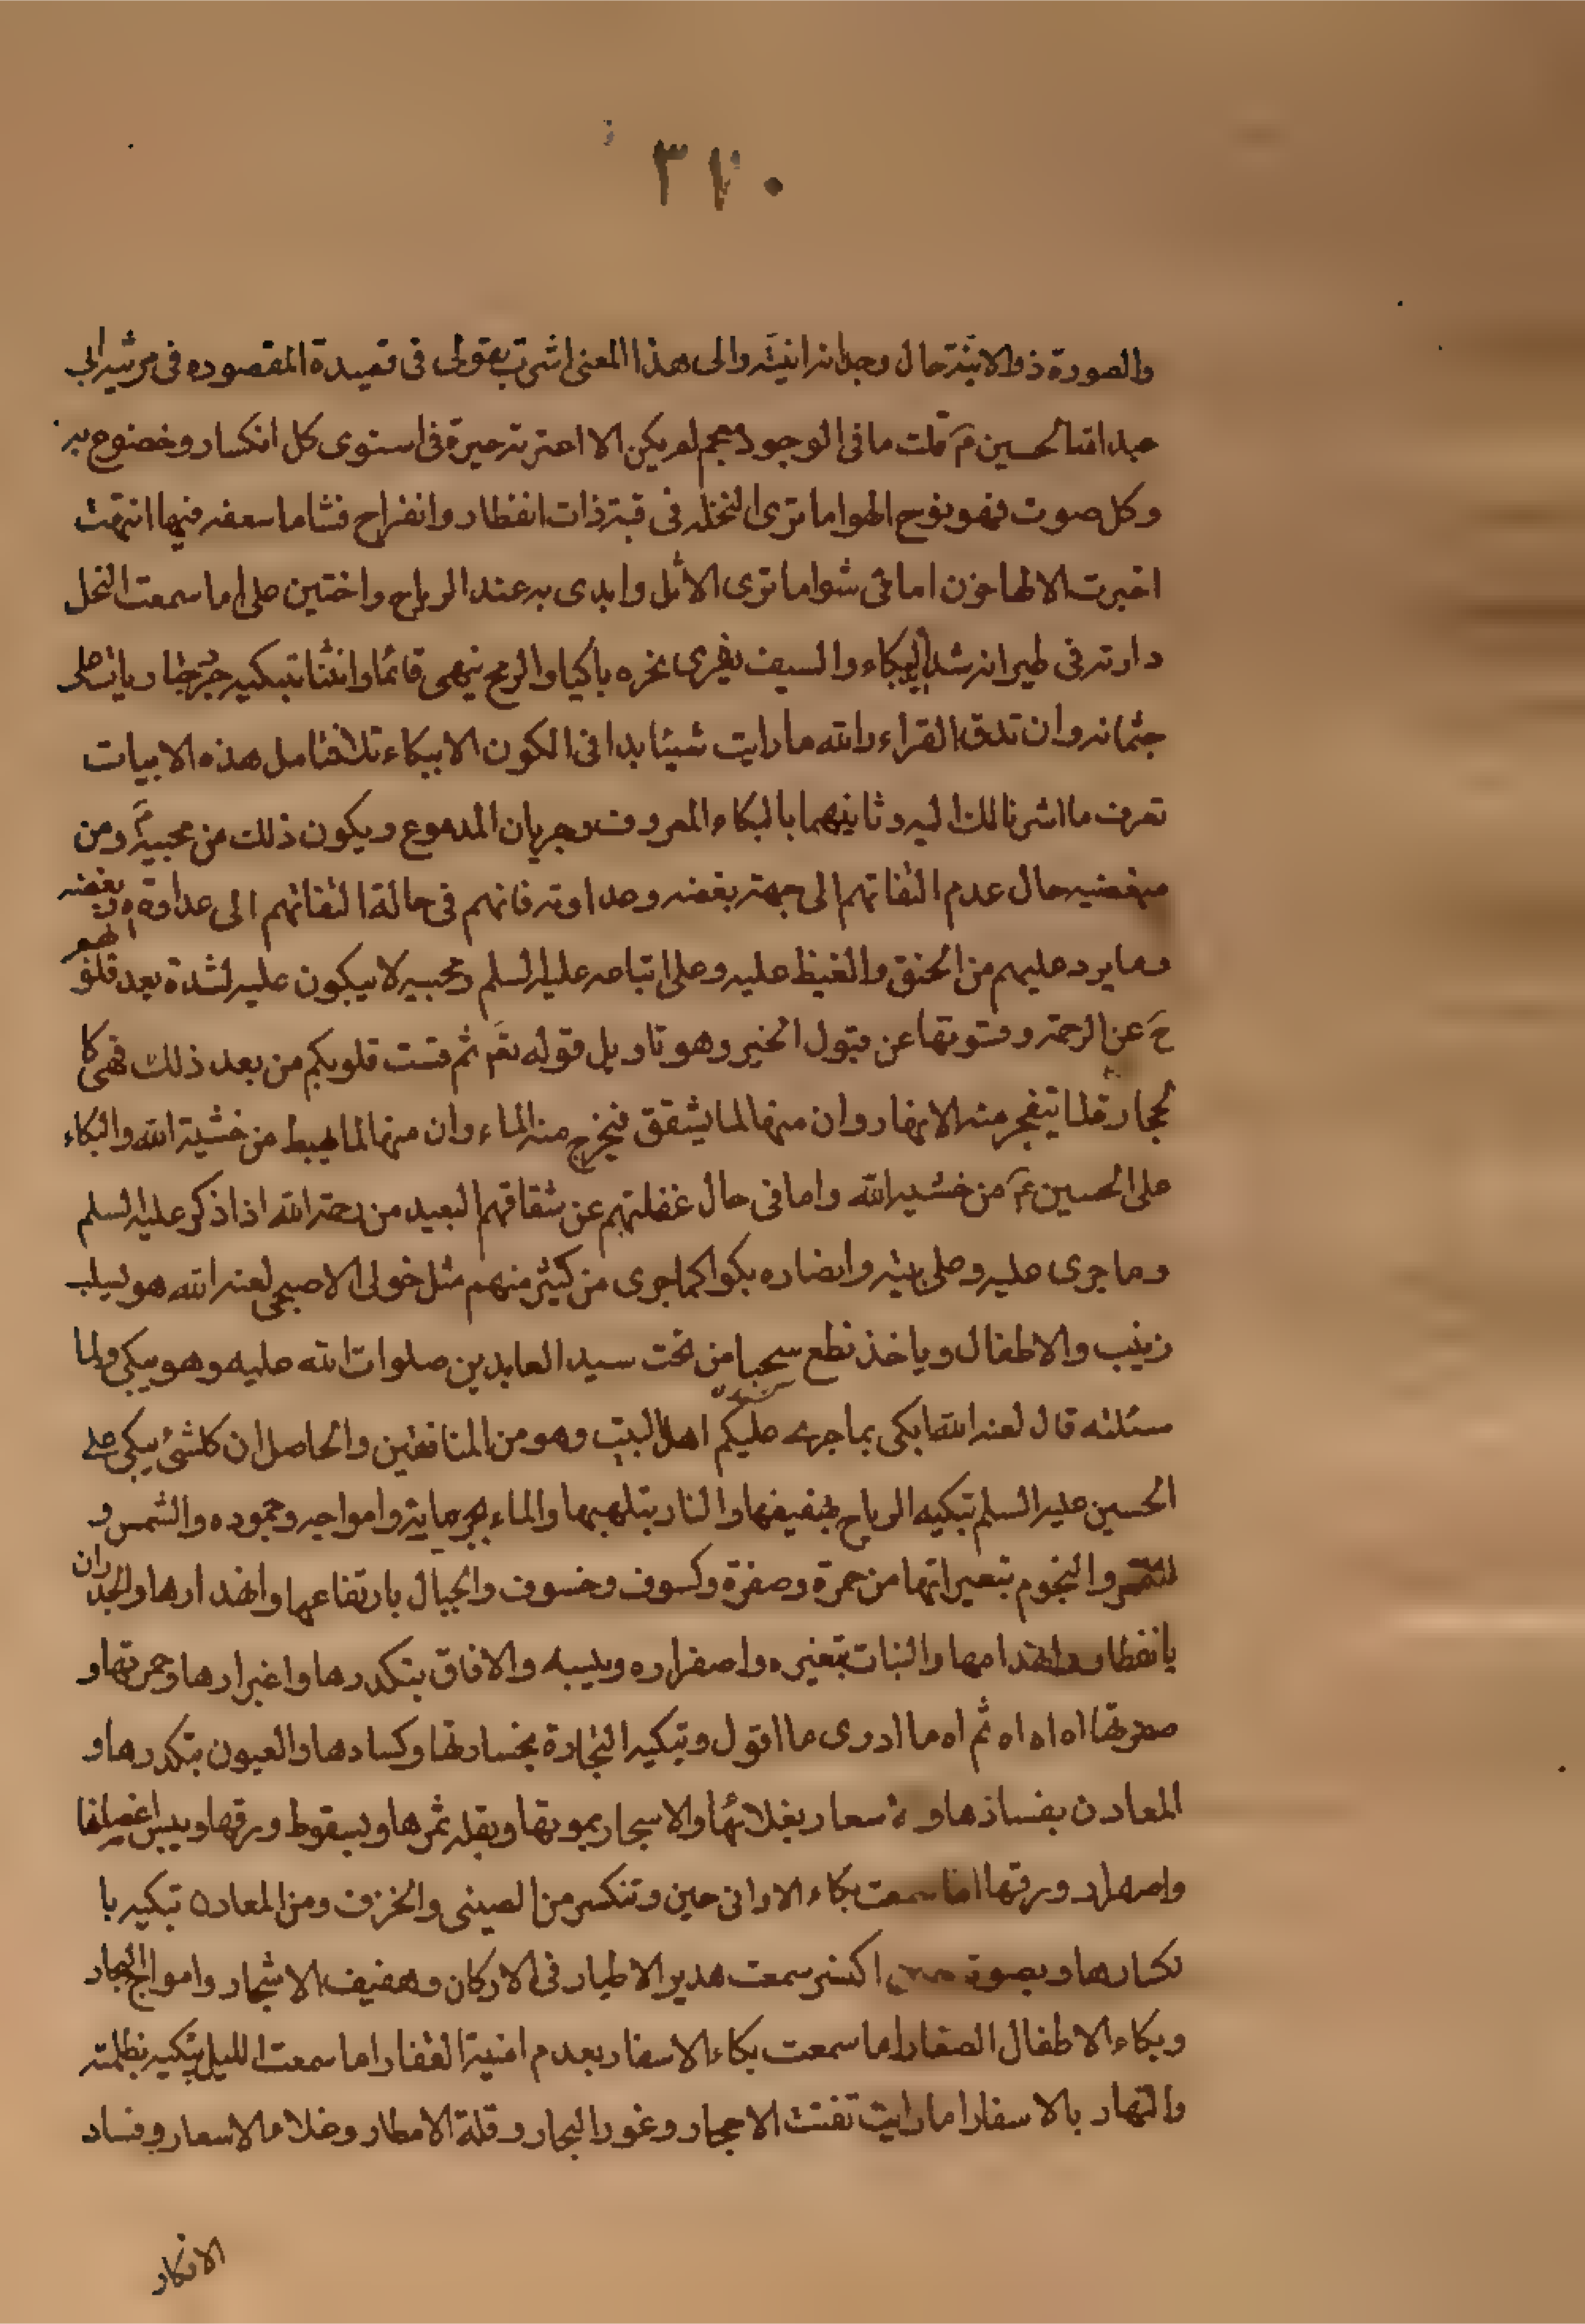 ٣٧٠
والصورة ذو الانيّة حال وجدانه انيته والى هذا المعنى اشرت بقولى فى قصيدة المقصوره فى مرثية ابى
عبد الله الحسين ع قلت ما فى الوجود معجم لم يكن الا اعترته حيرة فى استوى كل انكسار وخضوع به
وكل صوت فهو نوح الهوا ما ترى النخله فى قبة ذات انفطار وانفراج فشا ما سعفه فيها انتهت
اخبرت الا لها حزن اما فى شوا ما ترى الاثل وابدى به عند الرياح واختين على اما سمعت النحل
دارته فى طيرانه شد البكاء والسيف يفرى نحره باكيا والرمح ينعى قائما وانثنا تبكيه جرد جاريات على
جثمانه وان تدق القراء والله ما رايت شيئا بدا فى الكون الا ببكاء تلا فتامل هذه الابيات
تعرف ما اشرنا لك اليه وثانيهما بالبكاء المعروف وجريان الدموع ويكون ذلك من محبيه ع ومن
مبغضيه حال عدم التفاتهم الى جهة بغضه وعداوته فانهم فى حالة التفاتهم الى عداوته وبغضه
وما يرد عليهم من الحنق والغيظ عليه وعلى اتباعه عليه السلم ومحبيه لا يبكون عليه لشدة بعد قلوبهم
ح عن الرحمة وقسوتها عن قبول الخير وهو تاويل قوله تع ثم قست قلوبكم من بعد ذلك فهى كا
لحجارة لما يتفجر منه الانهار وان منها لما يشقق فيخرج منه الماء وان منها لما يهبط من خشية الله والبكاء
على الحسين ع من خشية الله واما فى حال غفلتهم عن شقاقهم البعيد من رحمة الله اذا ذكر عليه السلم
وما جرى عليه وعلى بنيه وانصاره بكوا كما جرى من كثير منهم مثل خولى الاصبحى لعنه الله هو يسلب
زينب والاطفال وياخذ نطع سحبا من تحت سيد العابدين صلوات الله عليه وهو يبكى ولما
سئلته قال لعنه الله ابكى بما جرى عليكم اهل البيت وهو من المنافقين والحاصل ان كلشئ يبكى على
الحسين عليه السلم تبكيه الرياح بهفيفها والنار بتلهبها والماء بجريانه وامواجه وجموده والشمس و
القمر والنجوم بتغيراتها من حمرة وصفرة وكسوف وخسوف والجبال بارتفاعها وانهدارها والجدران
بانفطار وانهدامها والنبات بتغيره واصفراره ويبسه والافاق بتكدرها واغبرارها وحمرتها و
صفرتها اه اه اه ثم اه ما ادرى ما اقول وتبكيه التجارة بخسارتها وكسادها والعيون بتكدرها و
المعادن بفسادها والاسعار بغلائها والاشجار بموتها وبقلة ثمرها وبسقوط ورقها ويبس اغصانها
واصفرار ورقها اما سمعت بكاء الاوانى حين وتنكسر من الصينى والخزف ومن المعادن تبكيه با
نكسارها وبصوت اكسر سمعت هدير الاطيار فى الاركان وهفيف الاشجار وامواج البحار
وبكاء الاطفال الصغار اما سمعت بكاء الاسفار بعدم امنية القفار اما سمعت الليل يبكيه بظلمته
والنهار بالاسفار اما رايت تفتت الاحجار وغور البحار وقلة الامطار وغلاء الاسعار وفساد
الافكار